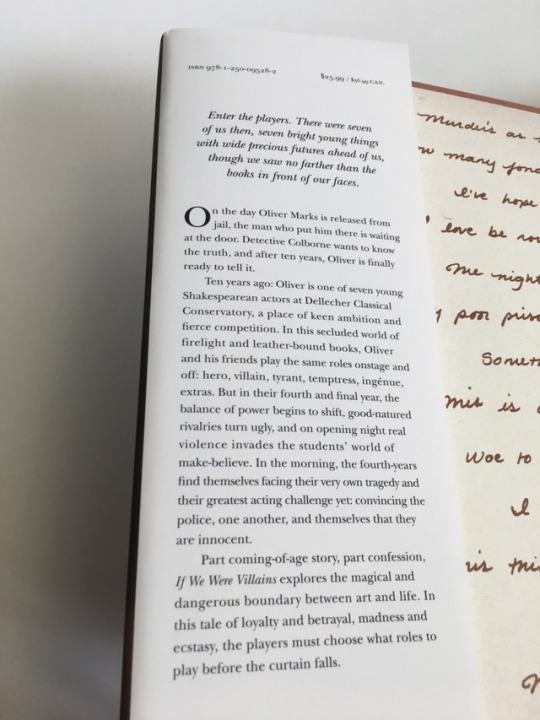 ISBN 978-1-250-09528-2
$25.99 / $36.99 CAN.
Enter the players. There were seven
of us then, seven bright young things
with wide precious futures ahead of us,
though we saw no farther than the
books in front of our faces.
On the day Oliver Marks is released from
jail, the man who put him there is waiting
at the door. Detective Colborne wants to know
the truth, and after ten years, Oliver is finally
ready to tell it.
Ten years ago: Oliver is one of seven young
Shakespearean actors at Dellecher Classical
Conservatory, a place of keen ambition and
fierce competition. In this secluded world of
firelight and leather-bound books, Oliver
and his friends play the same roles onstage and
off: hero, villain, tyrant, temptress, ingénue,
extras. But in their fourth and final year, the
balance of power begins to shift, good-natured
rivalries turn ugly, and on opening night real
violence invades the students' world of
make-believe. In the morning, the fourth-years
find themselves facing their very own tragedy and
their greatest acting challenge yet: convincing the
police, one another, and themselves that they
are innocent.
Part coming-of-age story, part confession,
If We Were Villains explores the magical and
dangerous boundary between art and life. In
this tale of loyalty and betrayal, madness and
ecstasy, the players must choose what roles to
play before the curtain falls.
many fond
I've hope
love be
me night
poor
is
Woe to
I